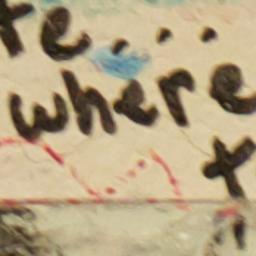 te...
where
t